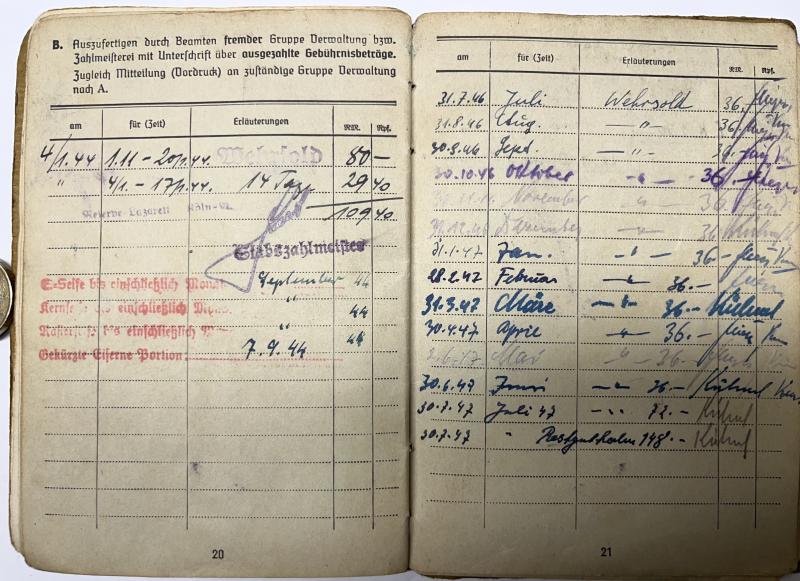 B. Auszufertigen durch Beamten fremder Gruppe Verwaltung bzw.
Zahlmeisterei mit Unterschrift über ausgezahlte Gebührnisbeträge.
Zugleich Mitteilung (Vordruck) an zuständige Gruppe Verwaltung
nach A.
am für (Zeit) Erläuterungen RM. Rpf.
4/1.44 1.11 - 20/1.44. Wehrsold 80 —
" 4/1. - 17/1.44. 14 Tage 29 40
109 40
Reserve Lazarett Köln-
Stabszahlmeister
E-Seife bis einschließlich Monat September 44
Kernseife bis einschließlich Monat " 44
Rasierseife bis einschließlich " 44
Gekürzte Eiserne Portion: 7.9.44
20
am für (Zeit) Erläuterungen RM. Rpf.
31.7.46 Juli Wehrsold 36.
31.8.46 Aug. — " — 36.
30.9.46 Sept. — " — 36.
30.10.46 Oktober — " — 36.-
November " 36.
30.12.46 Dezember — " — 36.
31.1.47 Jan. — " — 36 -
28.2.47 Februar — " — 36.-
31.3.47 März — " — 36.- Kühnel
30.4.47 April — " — 36.-
Mai " 36.-
30.6.47 Juni — " — 36.- Kühnel
30.7.47 Juli 47 — " — 72.- Kühnel
30.7.47 " Restguthaben 148.- Kühnel
21